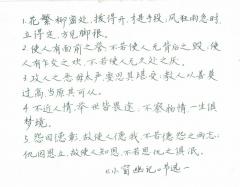 1.花繁柳密处,拨得开,才是手段;风狂雨急时,
立得定,方见脚根。
2.使人有面前之誉,不若使人无背后之毁;使
人有乍交之欢,不若使人无久处之厌。
3.攻人之恶毋太严,要思其堪受;教人以善莫
过高,当原其可从。
4.不近人情,举世皆畏途;不察物情,一生俱
梦境。
5.怨因德彰,故使人德我,不若德怨之两忘;
仇因恩立,故使人知恩,不若恩仇之俱泯。
《小窗幽记》节选